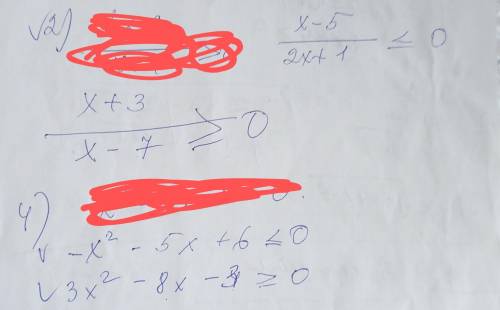 √2) (x-5)/(2x+1) ≤ 0
(x+3)/(x-7) ≥ 0
4)
√ -x² - 5x + 6 ≤ 0
√ 3x² - 8x - 3 ≥ 0